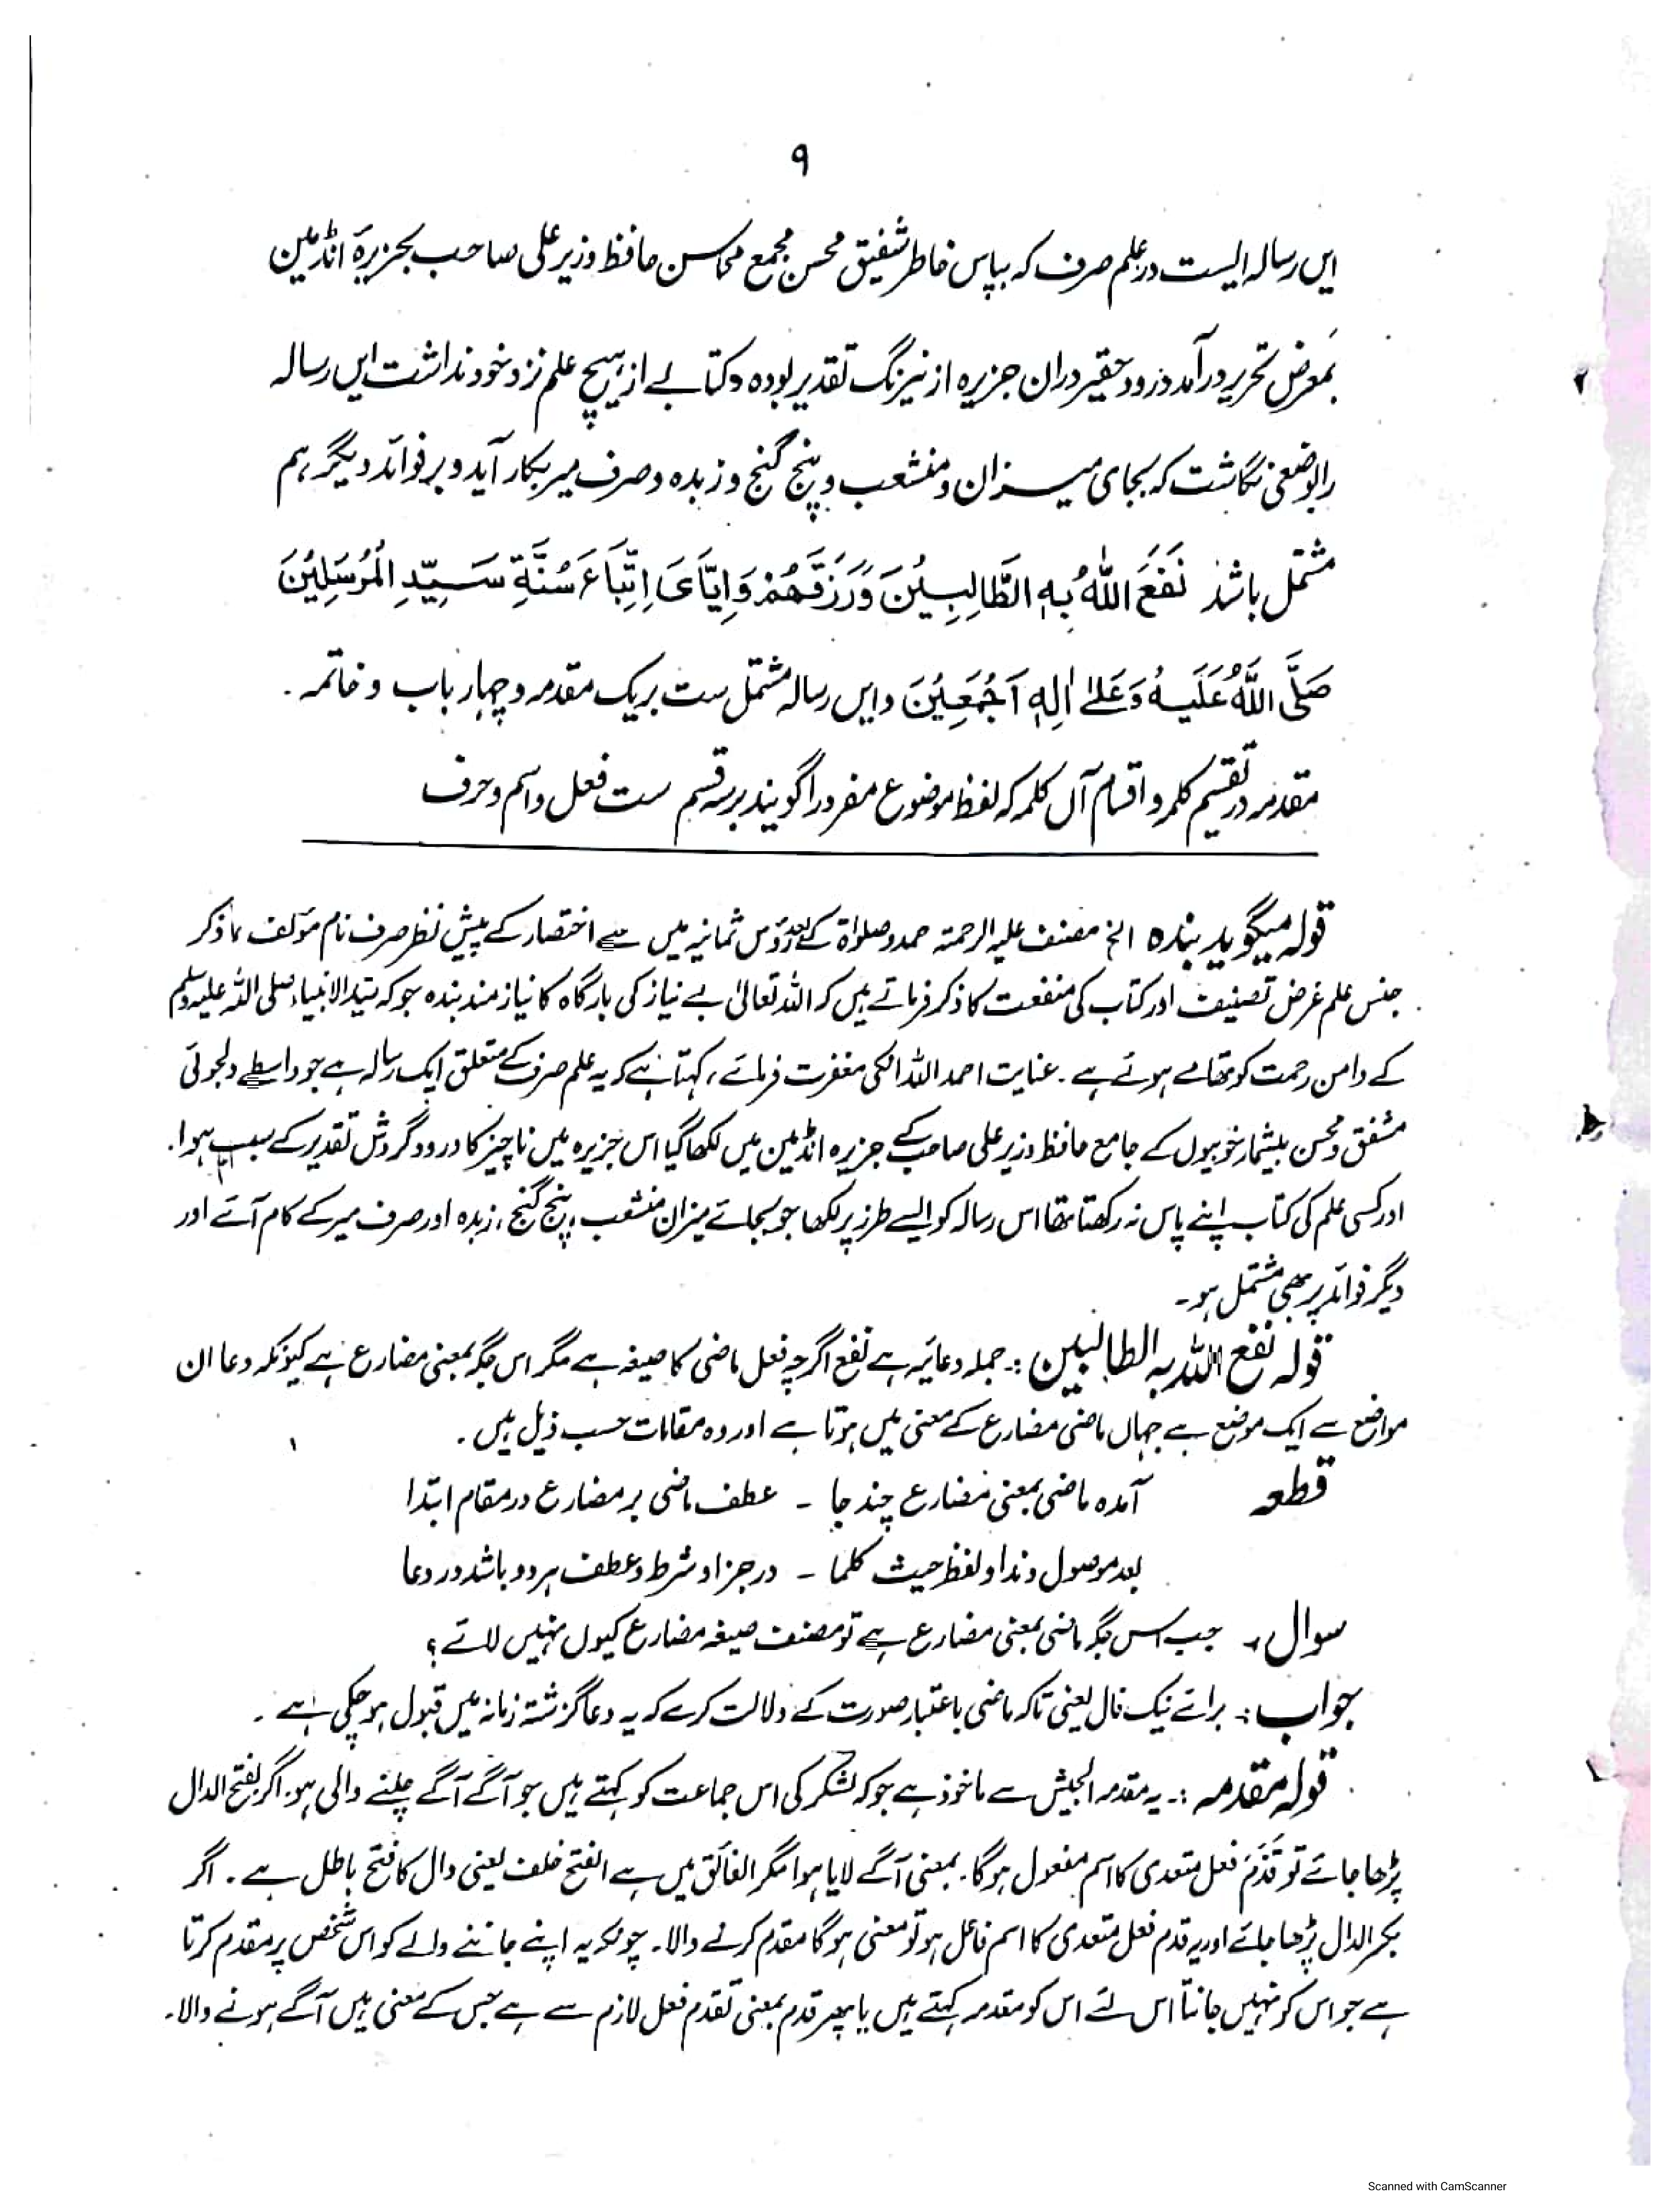 ۹
ایں رسالہ ایست در علم صرف کہ بپاس خاطر شفیق محسن مجمع محاسن حافظ وزیر علی صاحب بجزیرۂ انڈمین
بَمعرض تحریر درآمد و ورود حقیر دران جزیرہ از نیرنگ تقدیر بودہ و کتابے از ہیچ علم نزد خود نداشت ایں رسالہ
را بوضعی نگاشت کہ بجای میزان و منشعب و پنج گنج و زبدہ و صرف میر بکار آید و بر فوائد دیگر ہم
مشتمل باشد نَفَعَ اللّٰهُ بِهِ الطَّالِبِيْنَ وَرَزَقَهُمْ وَاِيَّايَ اِتِّبَاعَ سُنَّةِ سَيِّدِ الْمُرْسَلِيْنَ
صَلَّى اللّٰهُ عَلَيْهِ وَعَلٰى اٰلِهٖ اَجْمَعِيْنَ و ایں رسالہ مشتمل ست بریک مقدمہ و چہار باب و خاتمہ ۔
مقدمہ در تقسیم کلمہ و اقسام آں کلمہ کہ لفظ موضوع مفرد را گویند بر سہ قسم ست فعل و اسم و حرف
قولہ میگوید بندہ الخ مصنف علیہ الرحمتہ حمد و صلوٰۃ کے بعد رؤس ثمانیہ میں سے اختصار کے پیش نظر صرف نام مؤلف کا ذکر
جنس علم غرض تصنیف اور کتاب کی منفعت کا ذکر فرماتے ہیں کہ اللہ تعالیٰ بے نیاز کی بارگاہ کا نیاز مند بندہ جو کہ سید الانبیاء صلی اللہ علیہ وسلم
کے دامن رحمت کو تھامے ہوئے ہے ۔ عنایت احمد اللہ اسکی مغفرت فرمائے، کہتا ہے کہ یہ علم صرف کے متعلق ایک رسالہ ہے جو واسطے دلجوئی
مشفق و محسن بیشمار خوبیوں کے جامع حافظ وزیر علی صاحب کے جزیرہ انڈمین میں لکھا گیا اس جزیرہ میں ناچیز کا ورود گردش تقدیر کے سبب ہوا.
اور کسی علم کی کتاب اپنے پاس نہ رکھتا تھا اس رسالہ کو ایسے طرز پر لکھا جو بجائے میزان منشعب، پنج گنج، زبدہ اور صرف میر کے کام آئے اور
دیگر فوائد پر بھی مشتمل ہو۔
قولہ نفع اللہ بہ الطالبین :۔ جملہ دعائیہ ہے نفع اگرچہ فعل ماضی کا صیغہ ہے مگر اس جگہ بمعنی مضارع ہے کیونکہ دعا ان
مواضع سے ایک موضع ہے جہاں ماضی مضارع کے معنی میں ہوتا ہے اور وہ مقامات حسب ذیل ہیں ۔
قطعہ آمدہ ماضی بمعنی مضارع چند جا ۔ عطف ماضی بر مضارع در مقام ابتدا
بعد موصول و ندا و لفظ حیث کلما ۔ در جزا و شرط و عطف ہر دو باشد در دعا
سوال :۔ جب اس جگہ ماضی بمعنی مضارع ہے تو مصنف صیغہ مضارع کیوں نہیں لائے ؟
جواب :۔ برائے نیک فال یعنی تاکہ ماضی باعتبار صورت کے دلالت کرے کہ یہ دعا گزشتہ زمانہ میں قبول ہو چکی ہے ۔
قولہ مقدمہ :۔ یہ مقدمہ الجیش سے ماخوذ ہے جو کہ لشکر کی اس جماعت کو کہتے ہیں جو آگے آگے چلنے والی ہو. اگر بفتح الدال
پڑھا جائے تو قَدَّمَ فعل متعدی کا اسم مفعول ہو گا. بمعنی آگے لایا ہوا مگر الفائق میں ہے الفتح خلف یعنی دال کا فتح باطل ہے ۔ اگر
بکسر الدال پڑھا جائے اور یہ قدم فعل متعدی کا اسم فاعل ہو تو معنی ہو گا مقدم کرنے والا۔ چونکہ یہ اپنے جاننے والے کو اس شخص پر مقدم کرتا
ہے جو اس کو نہیں جانتا اس لئے اس کو مقدمہ کہتے ہیں یا پھر قدم بمعنی تقدم فعل لازم سے ہے جس کے معنی ہیں آگے ہونے والا۔
Scanned with CamScanner